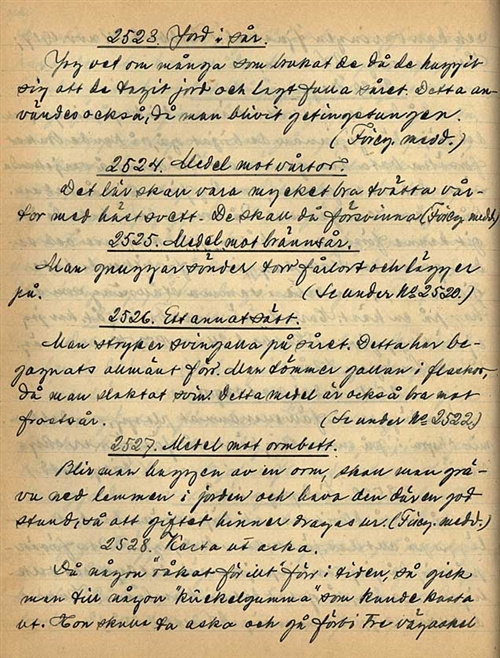 2523. Jord i sår.
Jag vet om många som brukat de då de huggit
sig att de tagit jord och lagt fulla såret. Detta an-
vändes också, då man blivit getingstungen.
(Föreg. medd.)
2524. Medel mot vårtor.
Det lär skall vara mycket bra tvätta vår-
tor med hästsvett. De skall då försvinna (Föreg. medd.)
2525. Medel mot brännsår.
Man gnuggar sönder torr fårlort och lägger
på. (Se under No 2520.)
2526. Ett annat sätt.
Man stryker svingalla på såret. Detta har be-
gagnats allmänt förr. Man tömmer gallan i flaskor,
då man slaktat svin. Detta medel är också bra mot
frostsår. (Se under No 2522)
2527. Medel mot ormbett.
Blir man huggen av en orm, skall man grä-
va ned lemmen i jorden och hava den där en god
stund, så att giftet hinner dragas ur. (Föreg. medd.)
2528. Kasta ut aska.
Då någon "råkat för illt" förr i tiden, så gick
man till någon "kückelgumma" som kunde kasta
ut. Hon skulle ta aska och gå förbi tre vägaskel